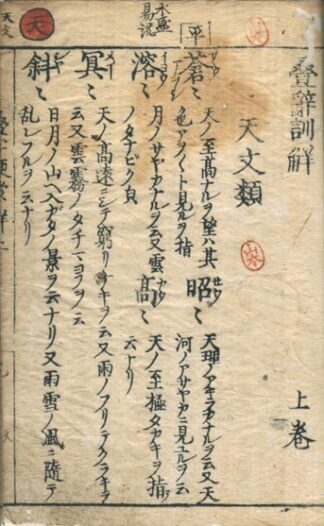 疊辭訓解 上巻
天文類
平
蒼〻 天ノ至高ナルヲ望ハ其
色アヲ〱ト見ルヲ指
昭〻 天理ノアキラカナルヲ云又天
河ノアザヤカニ見ユルヲ云
溶〻 月ノサヤカナルヲ云又雲
ノタナビク皃
高〻 天ノ至極タカキヲ指
云ナリ
冥〻 天ノ高遠ニシテ窮リナキヲ云又雨ノフリテクラキヲ
云又雲霧ノタチマヨフヲ云
斜〻 日月ノ山ヘ入ガタノ景ヲ云ナリ又雨雪ノ風ニ隨テ
乱レフルヲ云ナリ
天
天文